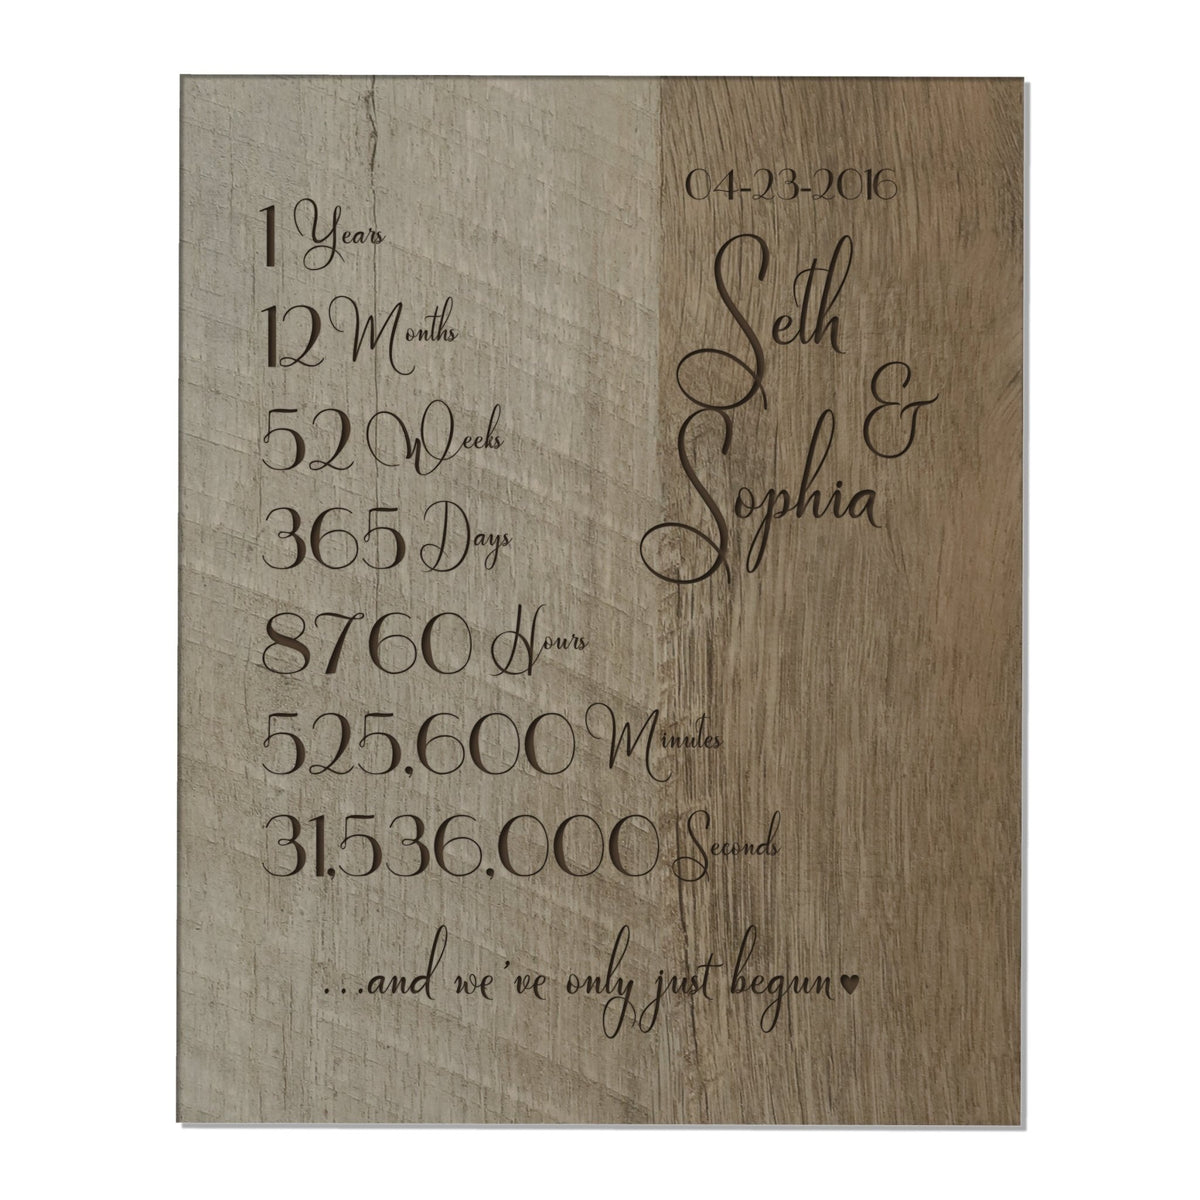 1 Years
12 Months
52 Weeks
365 Days
8760 Hours
525,600 Minutes
31,536,000 Seconds
04-23-2016
Seth
&
Sophia
...and we've only just begun♥